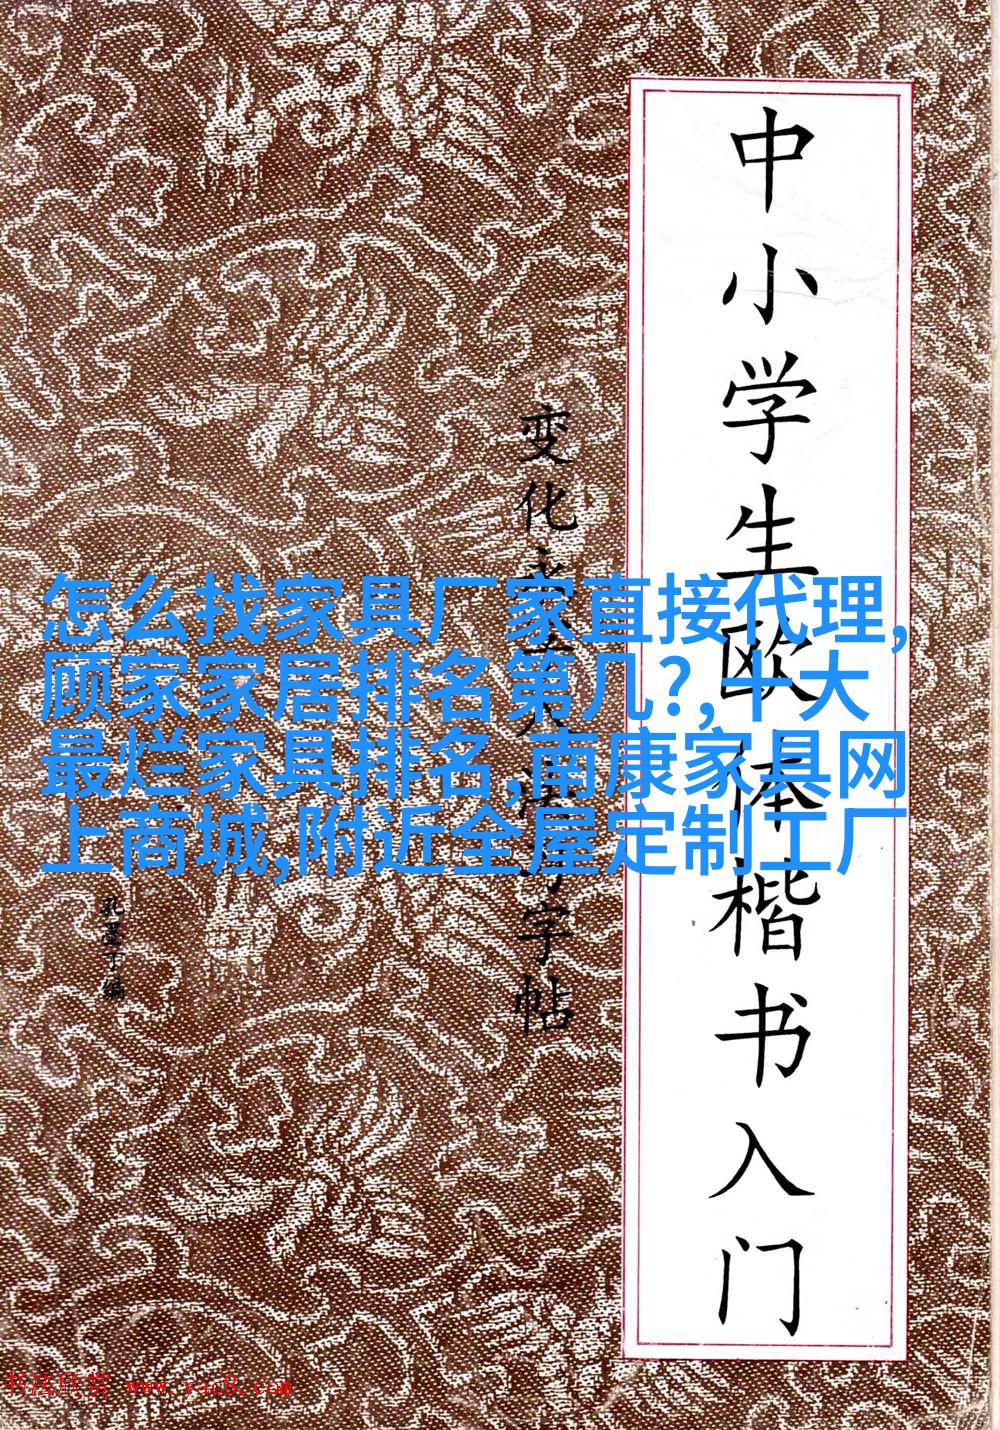 中小学生欧体楷书入门
变化
字帖
孔墨丁编
怎么找家具厂家直接代理,
顾家家居排名第几?,十大
最烂家具排名,南康家具网
上商城,附近全屋定制工厂
书法欣赏 www.yac8.com